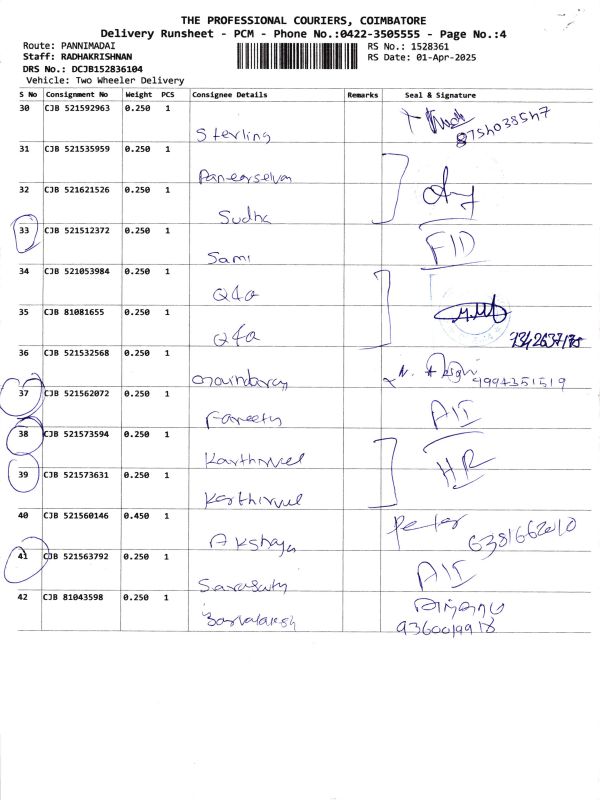 THE PROFESSIONAL COURIERS, COIMBATORE
Delivery Runsheet - PCM - Phone No.:0422-3505555 - Page No.:4
Route: PANNIMADAI
RS No.: 1528361
Staff: RADHAKRISHNAN
RS Date: 01-Apr-2025
DRS No.: DCJB152836104
Vehicle: Two Wheeler Delivery
S No Consignment No Weight PCS Consignee Details Remarks Seal & Signature
30 CJB 521592963 0.250 1
Sterling
31 CJB 521535959 0.250 1
32 CJB 521621526 0.250 1
Sudha
33 CJB 521512372 0.250 1
Sami
34 CJB 521053984 0.250 1
Q4a
35 CJB 81081655 0.250 1
Q4a
36 CJB 521532568 0.250 1
9994351519
37 CJB 521562072 0.250 1
38 CJB 521573594 0.250 1
Karthivvel
HR
39 CJB 521573631 0.250 1
Karthivvel
40 CJB 521560146 0.450 1
Akshaya
41 CJB 521563792 0.250 1
42 CJB 81043598 0.250 1